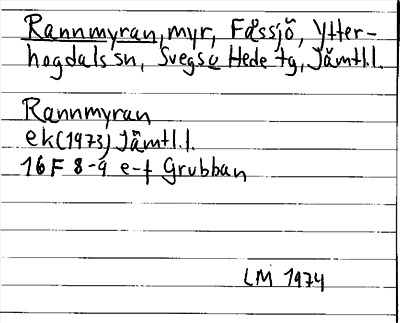 Rannmyran, myr, Fåssjö, Ytter-
hogdals sn, Svegs o Hede tg, Jämtl.l.
Rannmyran
ek (1973) Jämtl.l.
16 F 8-9 e-f Grubban
LM 1974